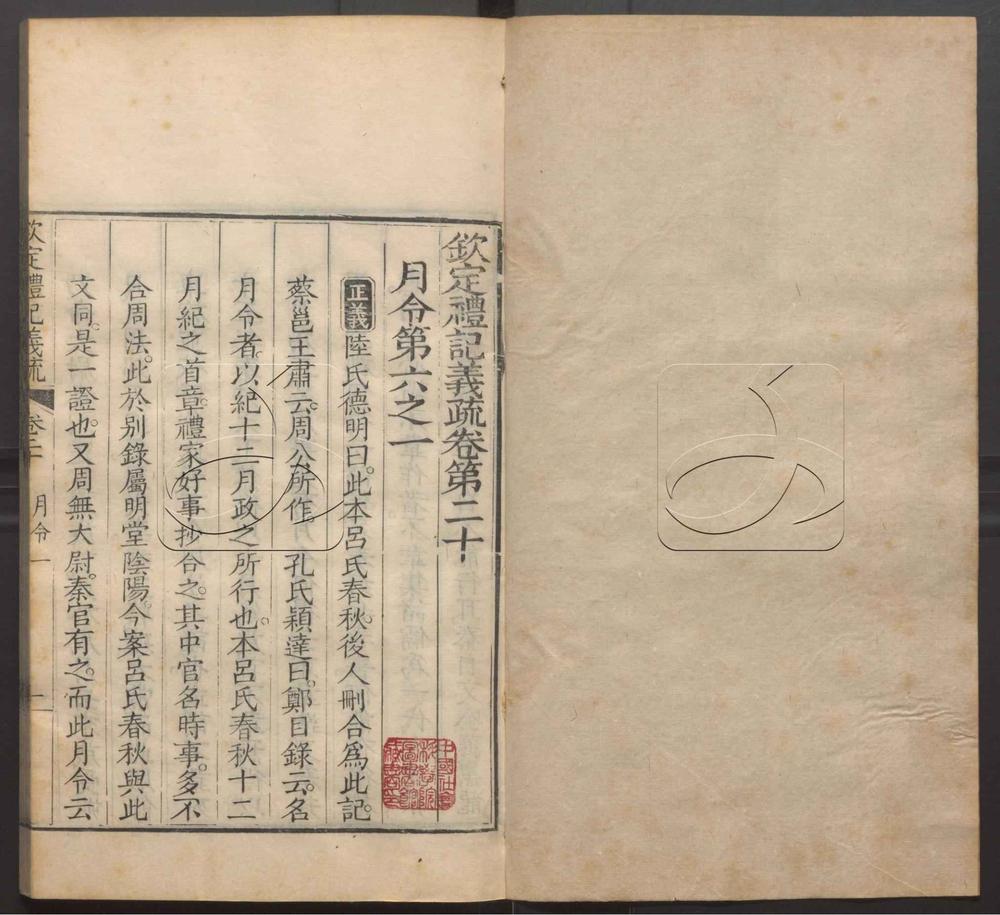 欽定禮記義疏卷第二十
月令第六之一
正義陸氏德明曰。此本呂氏春秋。後人刪合爲此記。
蔡邕王肅云。周公所作。孔氏穎達曰。鄭目錄云。名
月令者。以紀十二月政之所行也。本呂氏春秋十二
月紀之首章。禮家好事抄合之。其中官名時事。多不
合周法。此於別錄屬明堂陰陽。今案呂氏春秋與此
文同。是一證也。又周無大尉。秦官有之。而此月令云
欽定禮記義疏 卷二十 月令 一